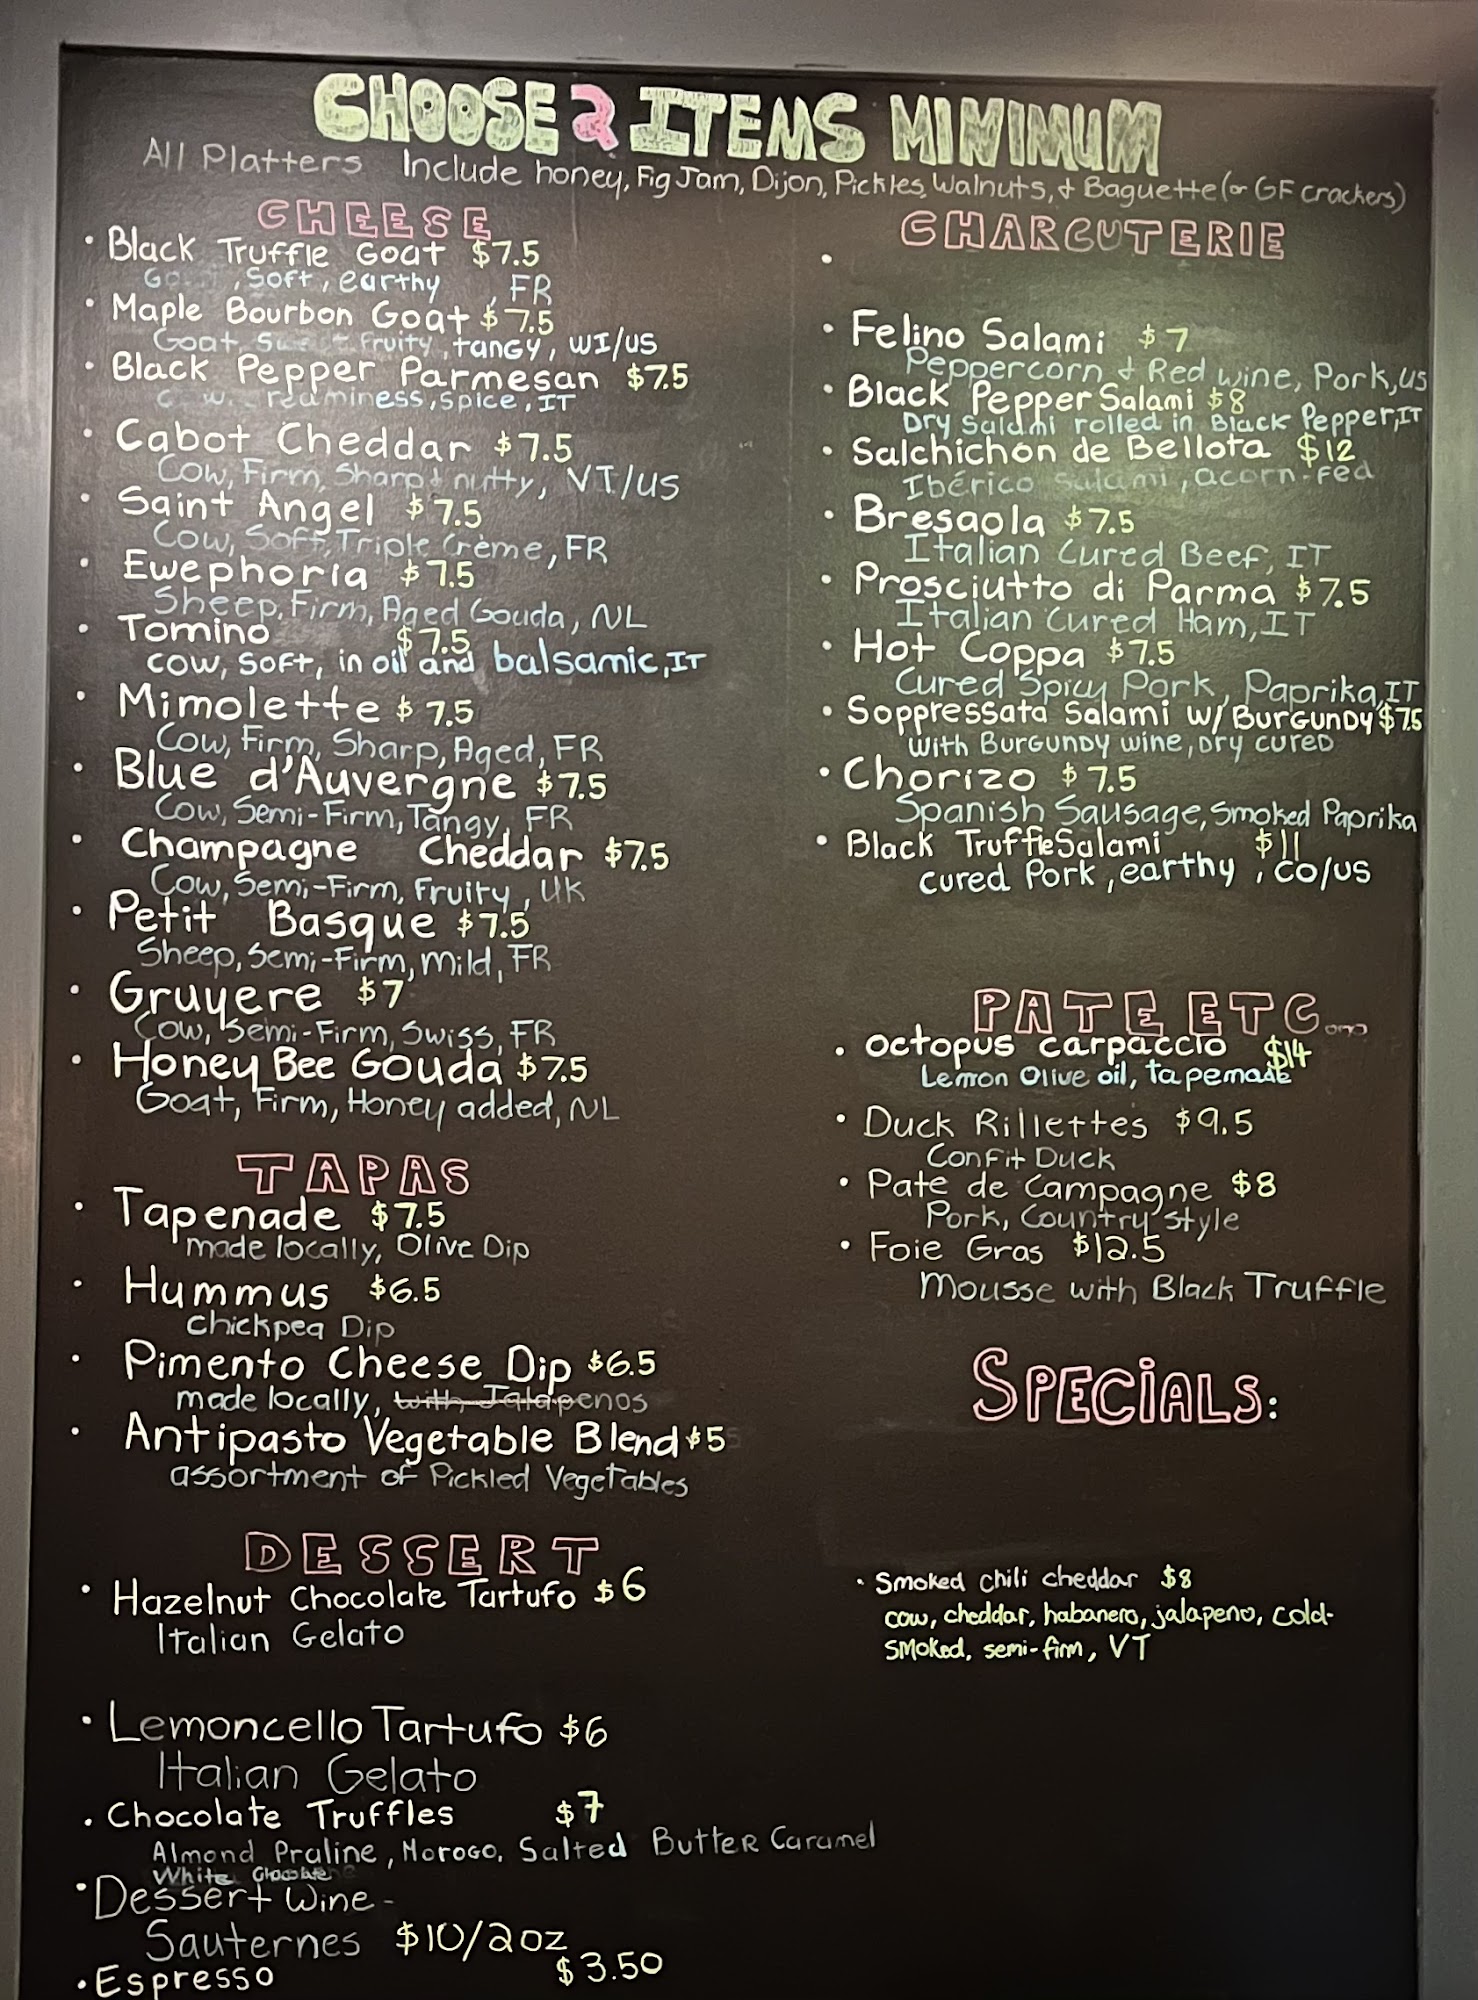 CHOOSE 2 ITEMS MINIMUM
All Platters Include honey, Fig Jam, Dijon, Pickles, Walnuts, & Baguette (or GF crackers)
CHEESE
• Black Truffle Goat $7.5
soft, earthy, FR
• Maple Bourbon Goat $7.5
Goat, Sweet fruity, tangy, WI/US
• Black Pepper Parmesan $7.5
spice, IT
• Cabot Cheddar $7.5
Cow, Firm, Sharp & nutty, VT/US
• Saint Angel $7.5
Cow, Soft, Triple Crème, FR
• Ewephoria $7.5
Sheep, Firm, Aged Gouda, NL
• Tomino $7.5
cow, soft, in oil and balsamic, IT
• Mimolette $7.5
Cow, Firm, Sharp, Aged, FR
• Blue d'Auvergne $7.5
Cow, Semi-Firm, Tangy, FR
• Champagne Cheddar $7.5
Cow, Semi-Firm, Fruity, UK
• Petit Basque $7.5
Sheep, Semi-Firm, Mild, FR
• Gruyere $7
Cow, Semi-Firm, Swiss, FR
• Honey Bee Gouda $7.5
Goat, Firm, Honey added, NL
TAPAS
• Tapenade $7.5
made locally, Olive Dip
• Hummus $6.5
chickpea Dip
• Pimento Cheese Dip $6.5
made locally, with Jalapenos
• Antipasto Vegetable Blend $5
assortment of Pickled Vegetables
DESSERT
• Hazelnut Chocolate Tartufo $6
Italian Gelato
• Lemoncello Tartufo $6
Italian Gelato
• Chocolate Truffles $7
Almond Praline, Morogo, Salted Butter Caramel
White Chocolate
• Dessert Wine -
Sauternes $10/2oz
• Espresso $3.50
CHARCUTERIE
•
• Felino Salami $7
Peppercorn & Red wine, Pork, US
• Black Pepper Salami $8
Dry Salami rolled in Black Pepper, IT
• Salchichon de Bellota $12
Ibérico Salami, acorn-fed
• Bresaola $7.5
Italian Cured Beef, IT
• Prosciutto di Parma $7.5
Italian Cured Ham, IT
• Hot Coppa $7.5
Cured Spicy Pork, Paprika, IT
• Soppressata Salami w/ Burgundy $7.5
with Burgundy wine, Dry cured
• Chorizo $7.5
Spanish Sausage, Smoked Paprika
• Black Truffle Salami $11
cured Pork, earthy, CO/US
PATE ETC...
• Octopus carpaccio $14
Lemon Olive oil, tapemade
• Duck Rillettes $9.5
Confit Duck
• Pate de Campagne $8
Pork, Country style
• Foie Gras $12.5
Mousse with Black Truffle
SPECIALS:
• Smoked chili cheddar $8
cow, cheddar, habanero, jalapeno, cold-
smoked, semi-firm, VT